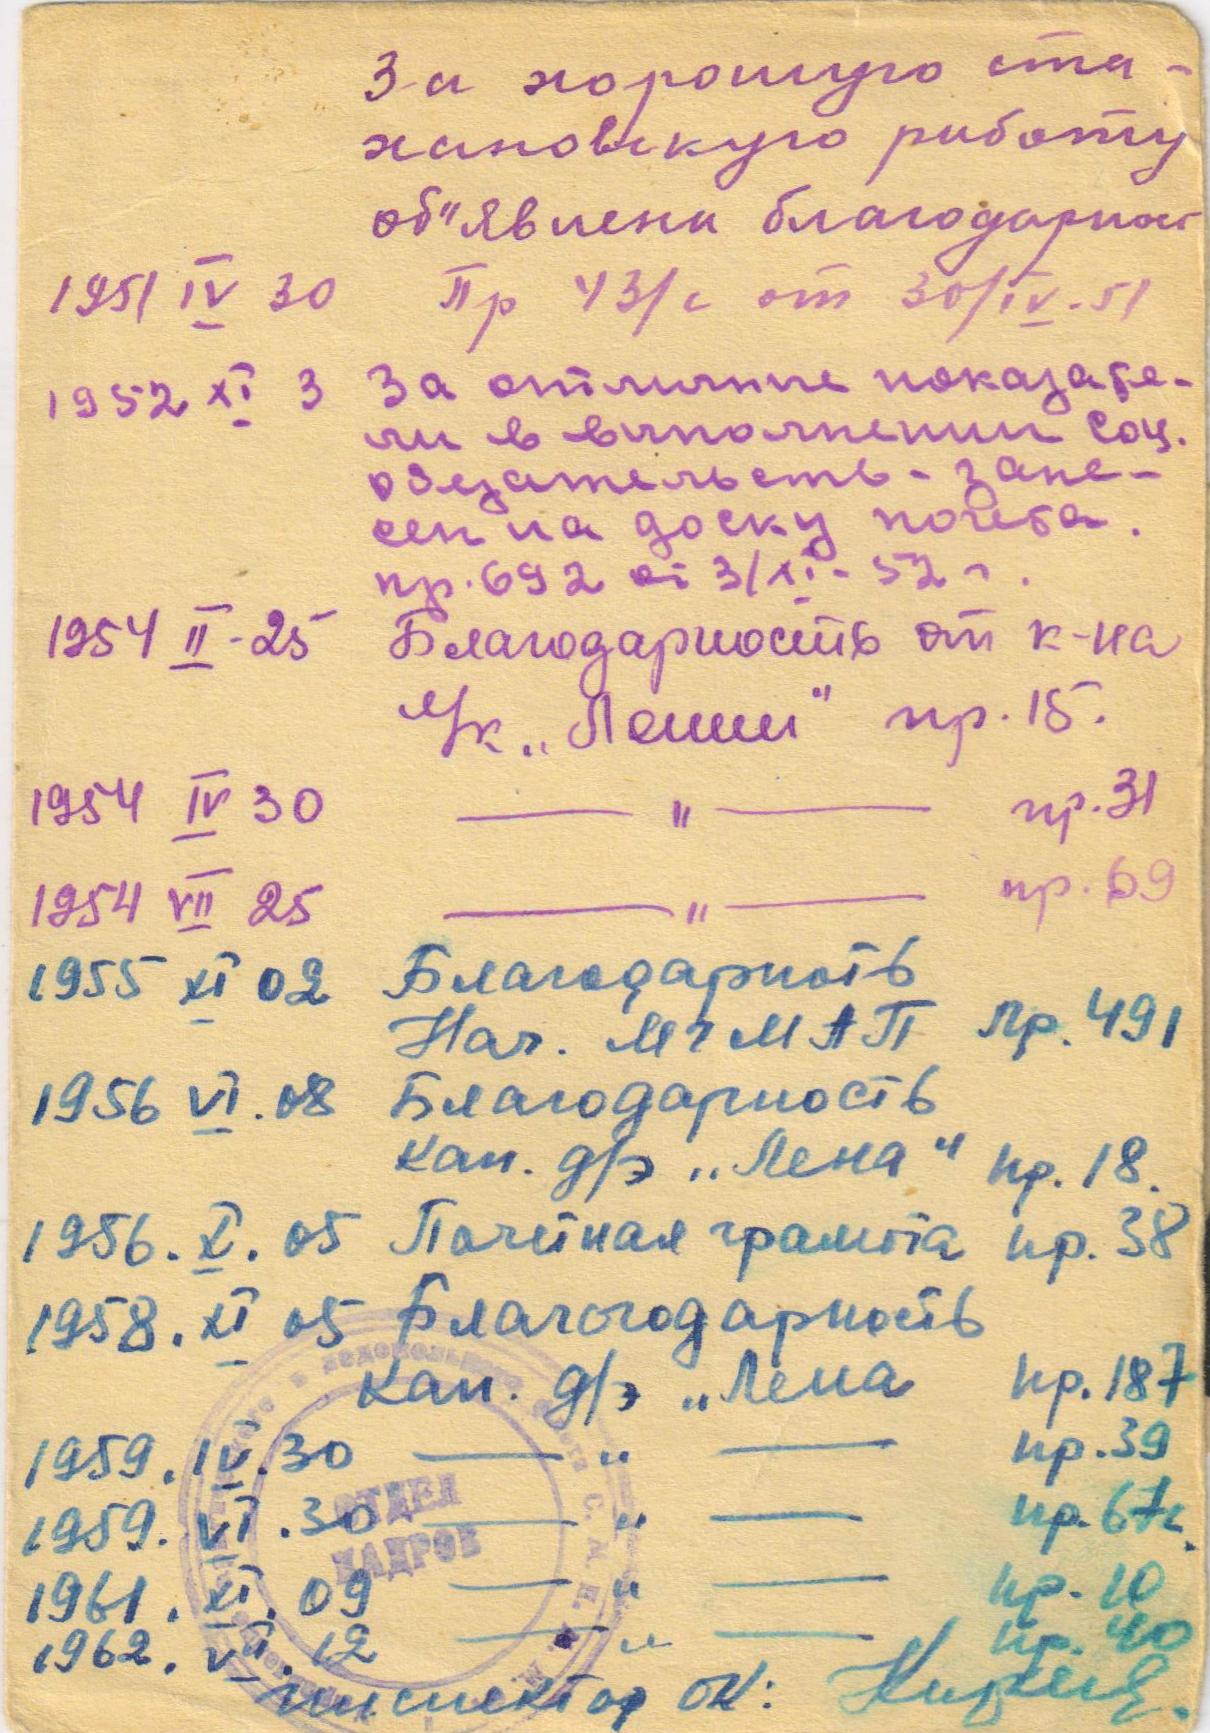 За хорошую ста-
хановскую работу
об"явлена благодарност
1951 IV 30 Пр 43/с от 30/IV-51
1952 XI 3 За отличные показате-
ли в выполнении Соц.
обязательств - зане-
сен на доску почета.
пр. 692 от 3/XI-52 г.
1954 II-25 Благодарность от к-на
л/к „Ленин" пр. 15.
1954 IV 30 —— " —— пр. 31
1954 VII 25 —— " —— пр. 69
1955 XI 02 Благодарность
Нач. МГМАП пр. 491
1956 VI. 08 Благодарность
Кап. д/э „Лена" пр. 18.
1956. X. 05 Почетная грамота пр. 38
1958. XI 05 Благогодарность
Кап. д/э „Лена пр. 187
1959. IV. 30 —— " —— пр. 39
1959. VI. 30 —— " —— пр. 67с.
1961. XI. 09 —— " —— пр. 10
1962. VII. 12 —— " —— пр. 40
инспектор ОК:
ОТДЕЛ
КАДРОВ